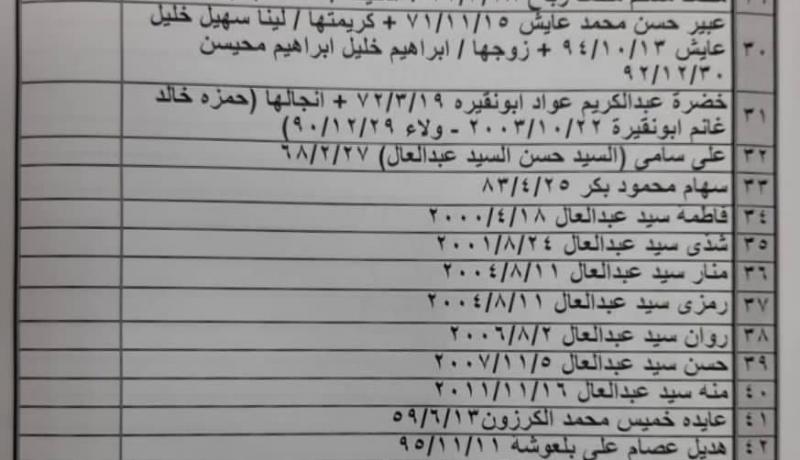 عبير حسن محمد عايش ٧١/١١/١٥ + كريمتها / لينا سهيل خليل
٣٠ عايش ٩٤/١٠/١٣ + زوجها / ابراهيم خليل ابراهيم محيسن
٩٢/١٢/٣٠
خضرة عبدالكريم عواد ابونقيره ٧٢/٣/١٩ + انجالها (حمزه خالد
٣١ غانم ابونقيرة ٢٠٠٣/١٠/٢٢ - ولاء ٩٠/١٢/٢٩)
٣٢ على سامى (السيد حسن السيد عبدالعال) ٦٨/٢/٢٧
٣٣ سهام محمود بكر ٨٣/٤/٢٥
٣٤ فاطمة سيد عبدالعال ٢٠٠٠/٤/١٨
٣٥ شذى سيد عبدالعال ٢٠٠١/٨/٢٤
٣٦ منار سيد عبدالعال ٢٠٠٤/٨/١١
٣٧ رمزى سيد عبدالعال ٢٠٠٤/٨/١١
٣٨ روان سيد عبدالعال ٢٠٠٦/٨/٢
٣٩ حسن سيد عبدالعال ٢٠٠٧/١١/٥
٤٠ منه سيد عبدالعال ٢٠١١/١١/١٦
٤١ عايده خميس محمد الكرزون ٥٩/٦/١٣
٤٢ هديل عصام على بلعوشة ٩٥/١١/١١